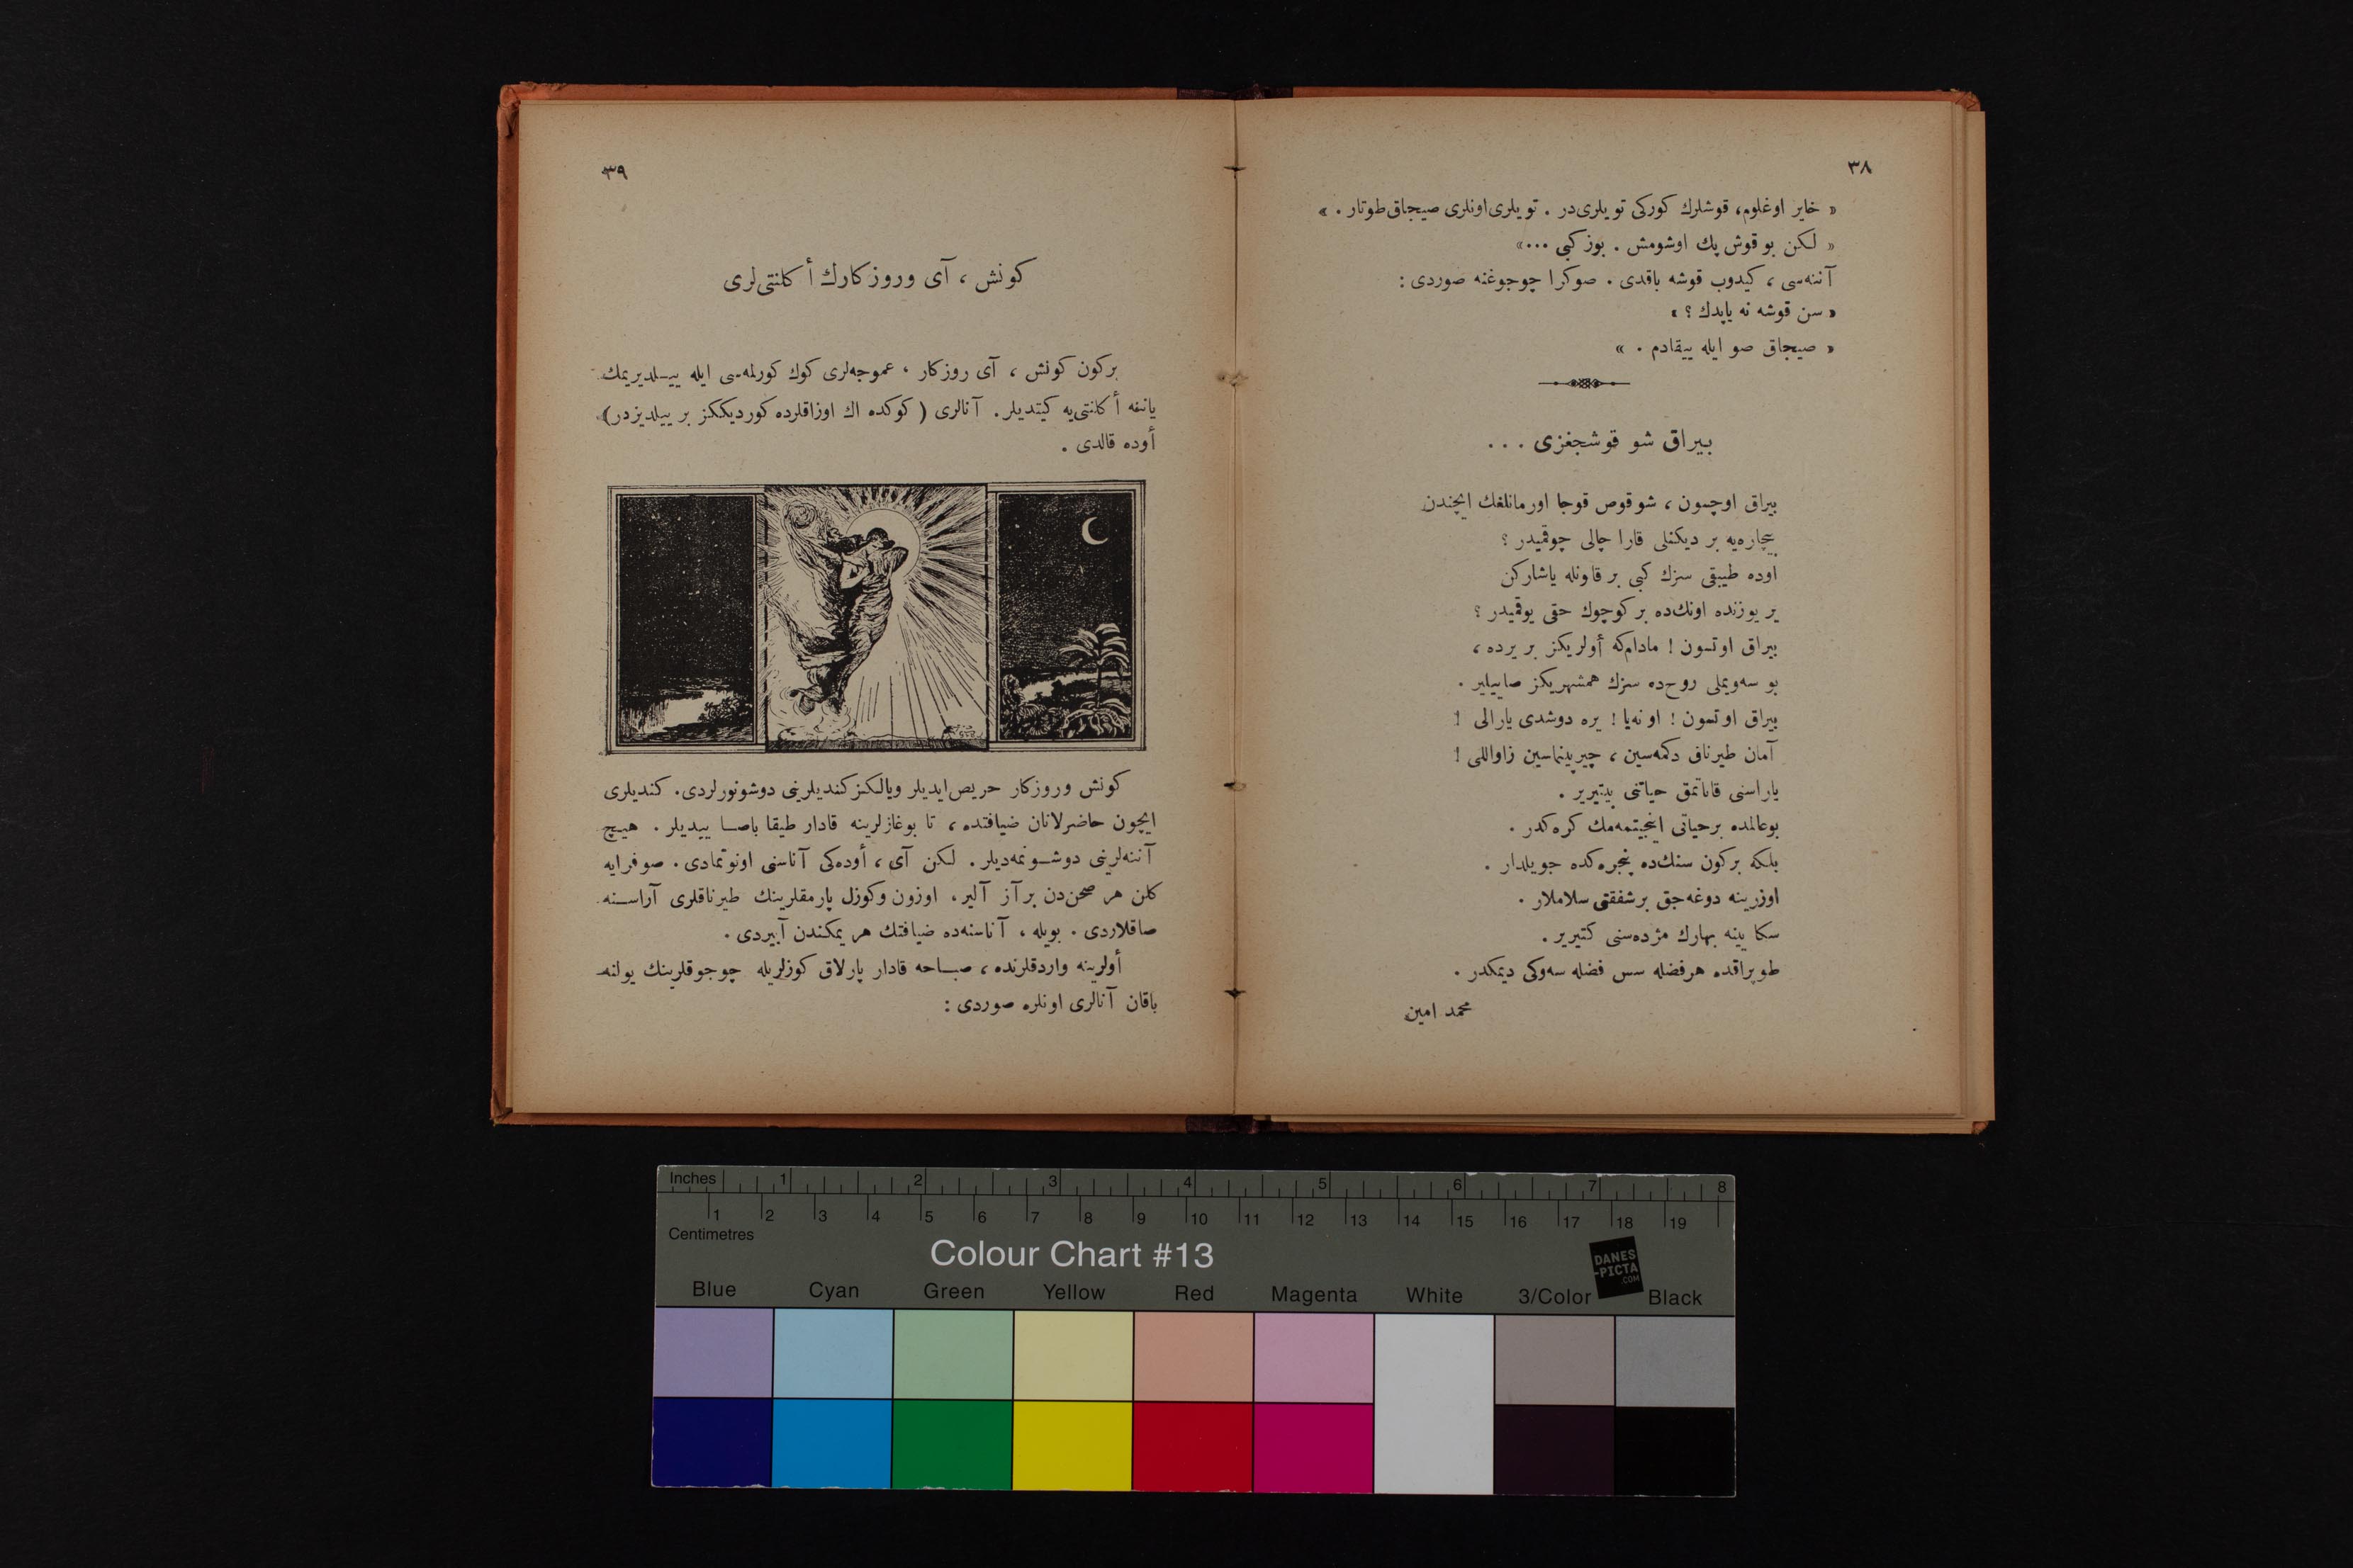 ٣٨
« خاير اوغلوم، قوشلرك كوركى تويلرى‌در . تويلرى اونلرى صيجاق طوتار . »
« لكن بو قوش پك اوشومش . بوز كبى ...»
آننه‌سى ، كيدوب قوشه باقدى . صوكرا چوجوغنه صوردى :
« سن قوشه نه ياپدك ؟ »
« صيجاق صو ايله ييقادم . »
بيراق شو قوشجغزى ...
بيراق اوچسون ، شو قوص قوجا اورمانلغك ايچندن
بيچاره‌يه بر ديكنلى قارا چالى چوقميدر ؟
اوده طيبقى سزك كبى بر قاونله ياشاركن
ير يوزنده اونك‌ده بر كوچوك حقى يوقميدر ؟
بيراق اوتسون ! مادام‌كه أولريكز بر يرده ،
بو سه‌ويملى روح‌ده سزك همشهريكز صاييلير .
بيراق اوتسون ! او نه‌يا ! يره دوشدى يارالى !
آمان طيرناق دكمه‌سين ، چيرپينماسين زاواللى !
ياراسنى قاناتمق حياتنى بيتيرير .
بوعالمده برحياتى اينجيتمه‌مك كره‌كدر .
بلكه بركون سنك‌ده پنجره‌كده جويلدار .
اوزرينه دوغه‌جق برشفقتى سلاملار .
سكا يينه بهارك مژده‌سنى كتيرير .
طوپراقده هرفضله سس فضله سه‌وكى ديمكدر .
محمد امين
٣٩
كونش ، آى وروزكارك أكلنتى‌لرى
بركون كونش ، آى روزكار ، عموجه‌لرى كوك كورلمه‌سى ايله ييلديريمك
ياننه أكلنتى‌يه كيتديلر . آنالرى ( كوكده اك اوزاقلرده كورديككز بر ييلديزدر )
أوده قالدى .
كونش وروزكار حريص ايديلر ويالكز كنديلرينى دوشونورلردى . كنديلرى
ايچون حاضرلانان ضيافتده ، تا بوغازلرينه قادار طيقا باصا ييديلر . هيچ
آننه‌لرينى دوشونمه‌ديلر . لكن آى ، أوده‌كى آناسنى اونوتمادى . صوفرايه
كلن هر صحن‌دن بر آز آلير ، اوزون وكوزل پارمقلرينك طيرناقلرى آراسنه
صاقلاردى . بويله ، آناسنه‌ده ضيافتك هر يمكندن آييردى .
أولرينه واردقلرنده ، صباحه قادار پارلاق كوزلريله چوجوقلرينك يولنه
باقان آنالرى اونلره صوردى :
Inches 1 2 3 4 5 6 7 8
1 2 3 4 5 6 7 8 9 10 11 12 13 14 15 16 17 18 19
Centimetres
Colour Chart #13
DANES
-PICTA
.COM
Blue Cyan Green Yellow Red Magenta White 3/Color Black